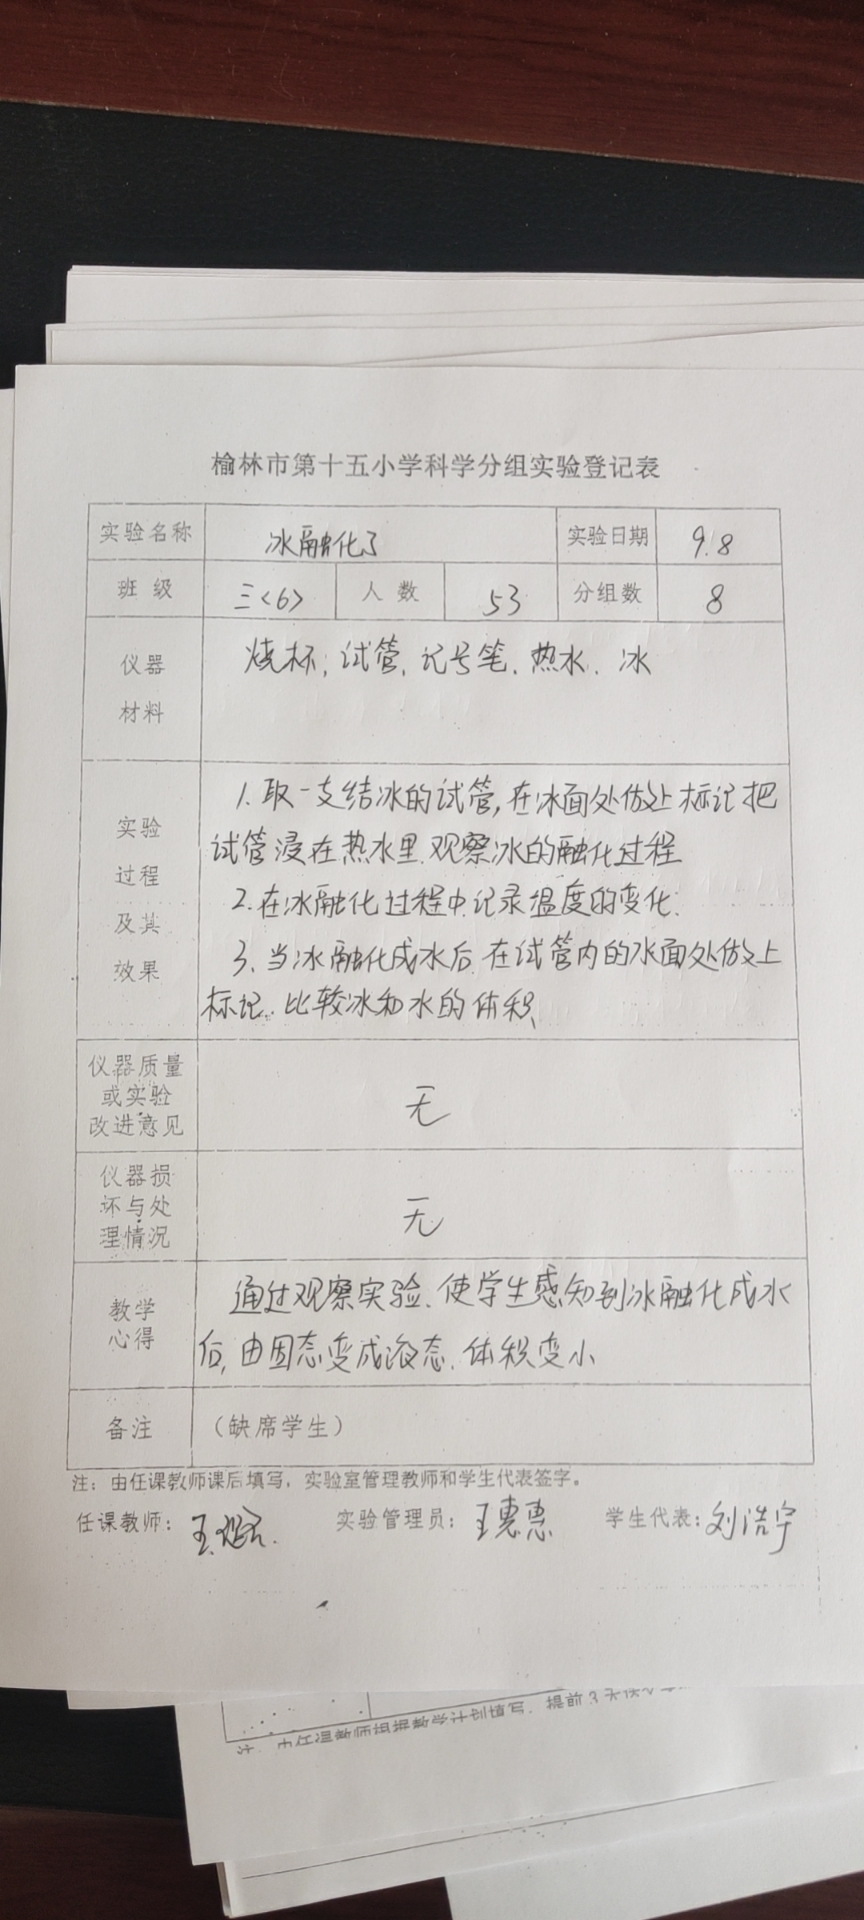 榆林市第十五小学科学分组实验登记表
实验名称 冰融化了 实验日期 9.8
班级 三<6> 人数 53 分组数 8
仪器材料 烧杯、试管、记号笔、热水、冰
实验过程及其效果
1.取一支结冰的试管,在冰面处做上标记把
试管浸在热水里.观察冰的融化过程
2.在冰融化过程中记录温度的变化.
3.当冰融化成水后.在试管内的水面处做上
标记.比较冰和水的体积
仪器质量或实验改进意见 无
仪器损坏与处理情况 无
教学心得
通过观察实验.使学生感知到冰融化成水
后,由固态变成液态.体积变小
备注 (缺席学生)
注:由任课教师课后填写,实验室管理教师和学生代表签字。
任课教师:王 实验管理员:王惠惠 学生代表:刘浩宇
注:由任课教师根据教学计划填写,提前3天